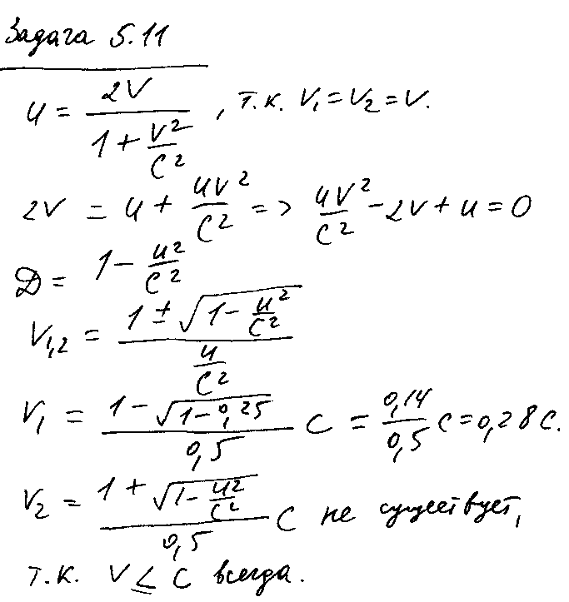 Задача 5.11
u = 2V / (1 + V²/c²), т.к. V₁ = V₂ = V.
2V = u + uV²/c² => uV²/c² - 2V + u = 0
D = 1 - u²/c²
V₁,₂ = (1 ± √(1 - u²/c²)) / (u/c²)
V₁ = (1 - √(1-0,25)) / 0,5 c = 0,14/0,5 c = 0,28 c.
V₂ = (1 + √(1 - u²/c²)) / 0,5 c не существует,
т.к. V ≤ c всегда.